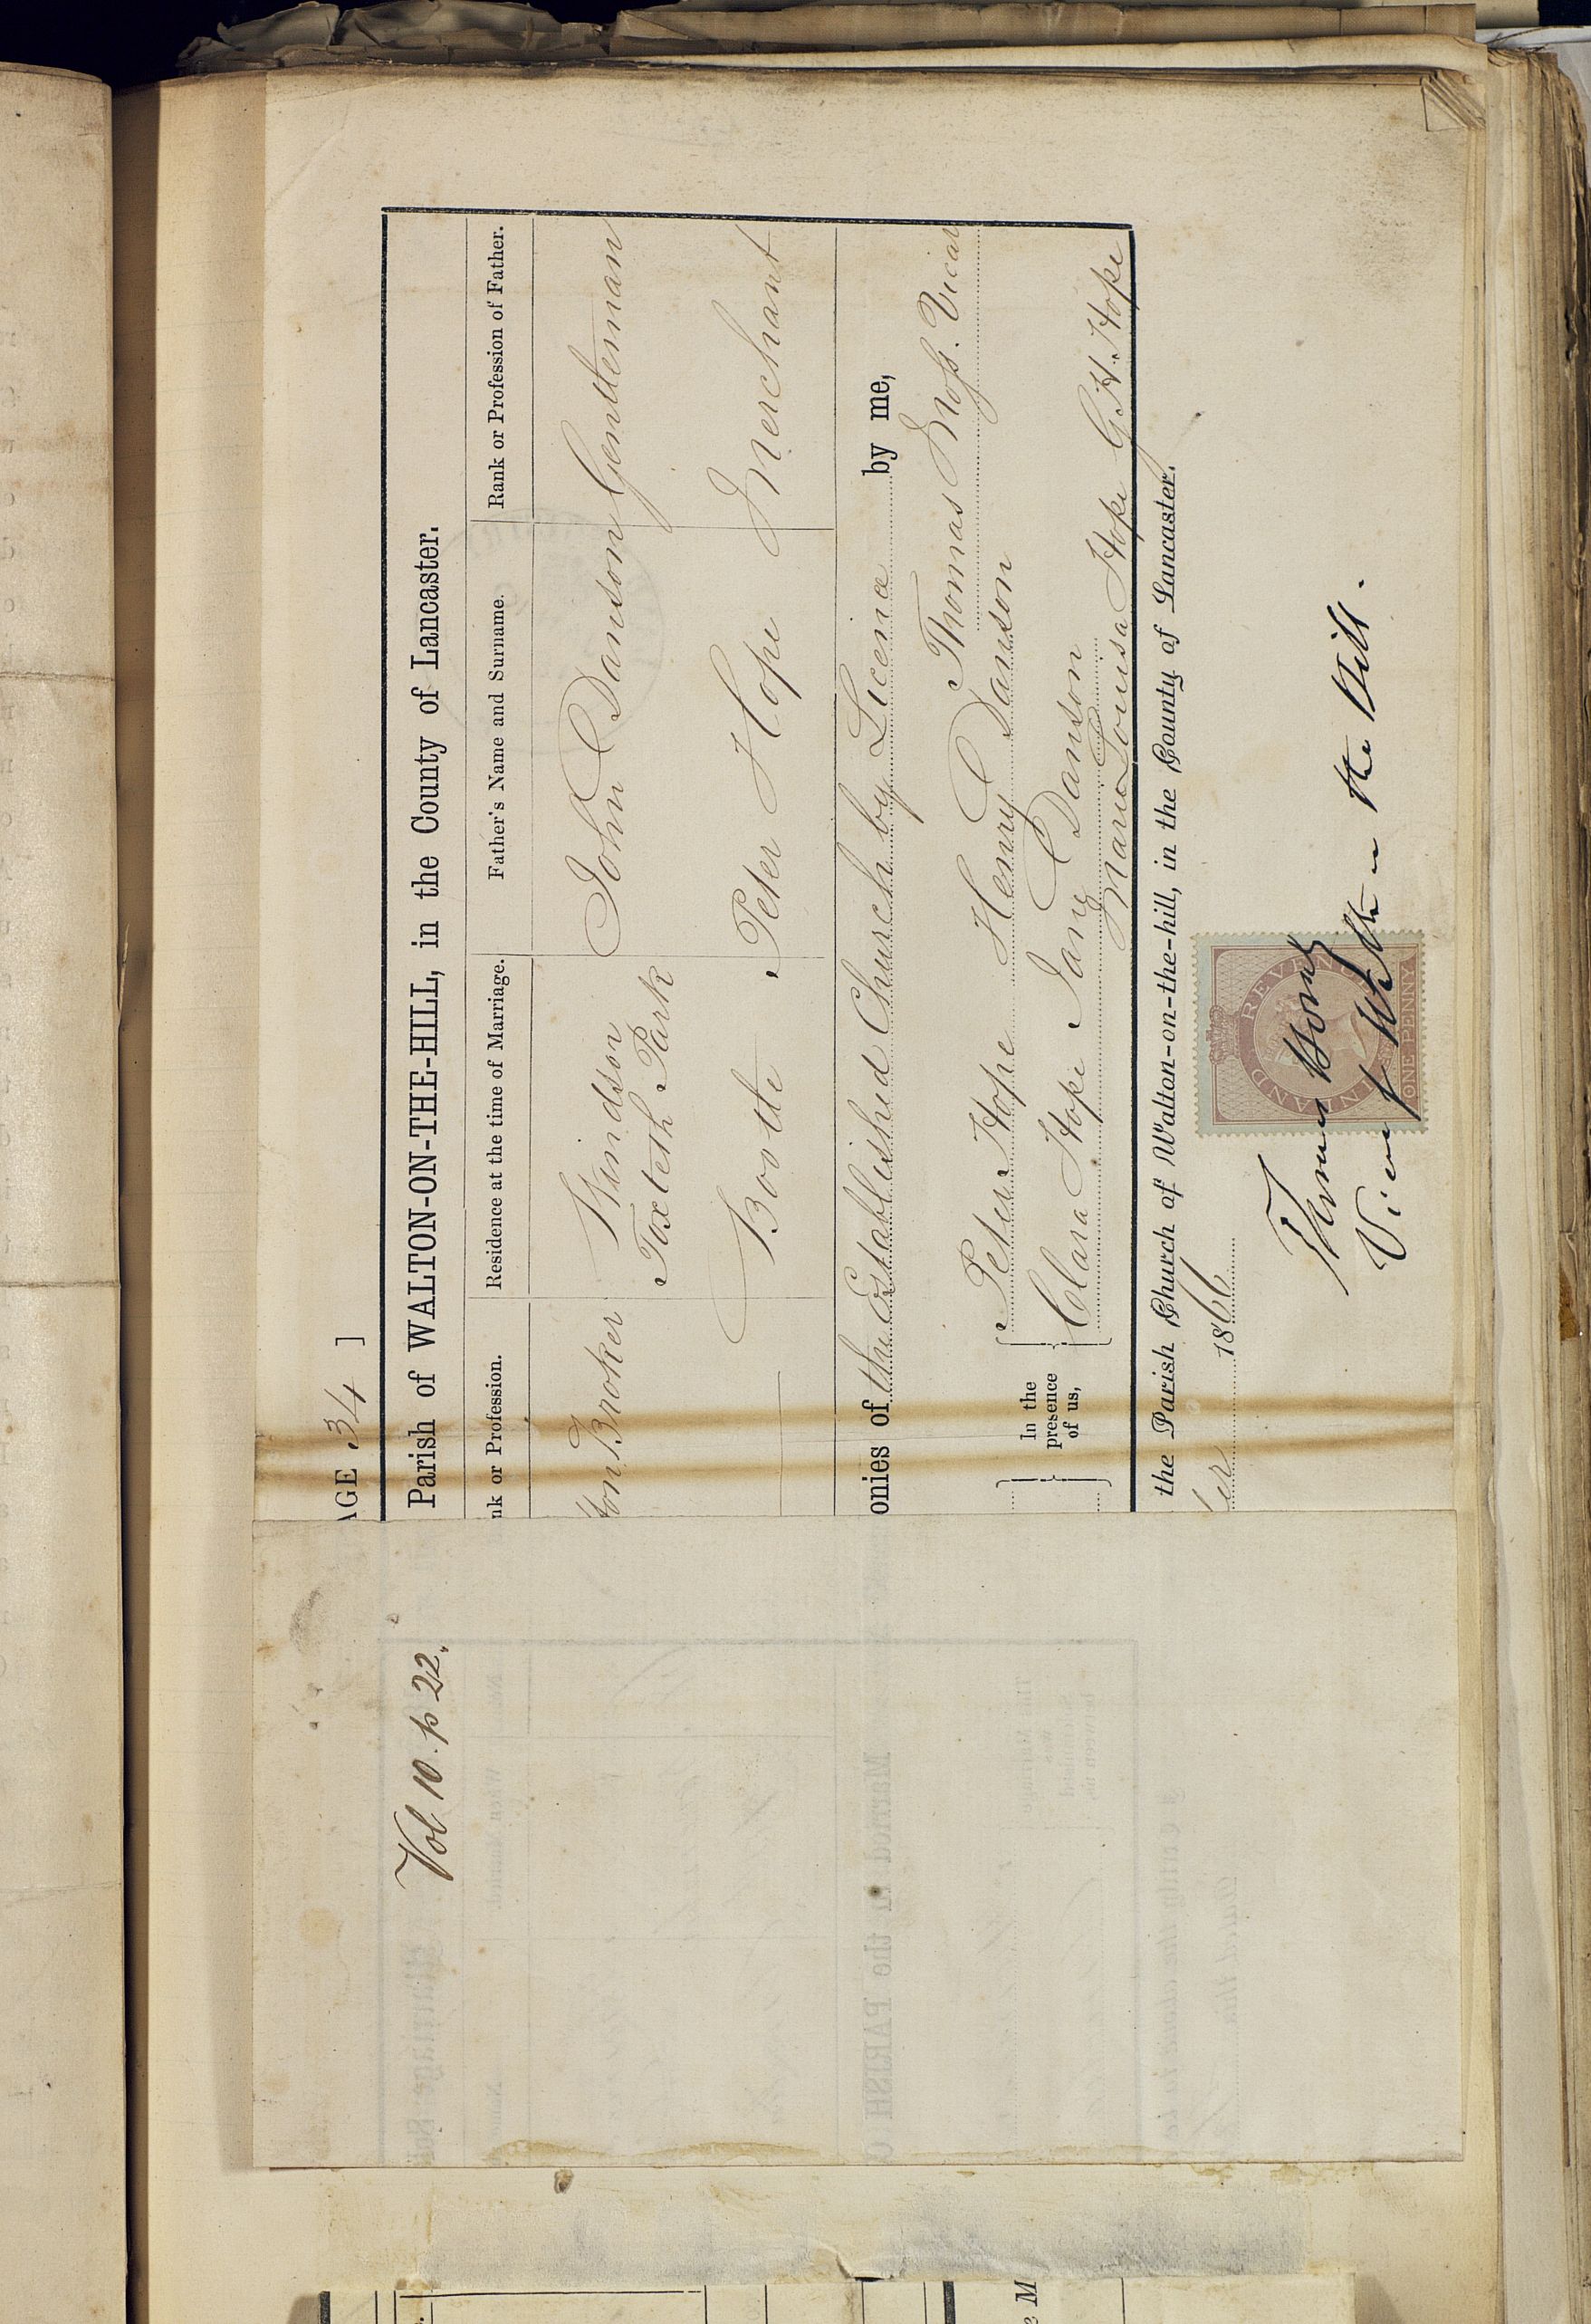 Vol 10. p 22.
AGE 34 ]
Parish of WALTON-ON-THE-HILL, in the County of Lancaster.
nk or Profession. Residence at the time of Marriage. Father's Name and Surname. Rank or Profession of Father.
ton Broker Windsor Toxteth Park John Danson Gentleman
Bootle Peter Hope Merchant
onies of the Established Church by Licence by me,
Thomas Moss. Vicar
In the presence of us, Peter Hope Henry Danson
Clara Hope Jane Danson
Maria Louisa Hope G. H. Hope
the Parish Church of Walton-on-the-hill, in the County of Lancaster.
er 1866
Thomas
Vicar of Walton the Hill.
INLAND REVENUE
ONE PENNY